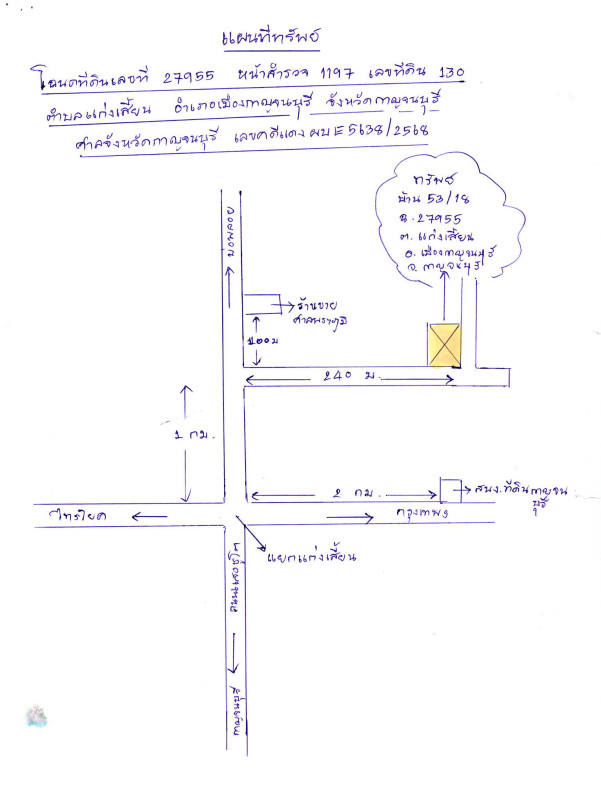 แผนที่ทรัพย์
โฉนดที่ดินเลขที่ 27955 หน้าสำรวจ 1197 เลขที่ดิน 130
ตำบลแก่งเสี้ยน อำเภอเมืองกาญจนบุรี จังหวัดกาญจนบุรี
ศาลจังหวัดกาญจนบุรี เลขคดีแดง ผบE5638/2568
ทรัพย์
บ้าน 53/18
ฉ. 27955
ต. แก่งเสี้ยน
อ. เมืองกาญจนบุรี
จ. กาญจนบุรี
บ่อพลอย
ร้านขาย
ศาลพระภูมิ
200ม
240 ม.
1 กม.
2 กม.
สนง. ที่ดินกาญจน
บุรี
ไทรโยค
กรุงเทพฯ
แยกแก่งเสี้ยน